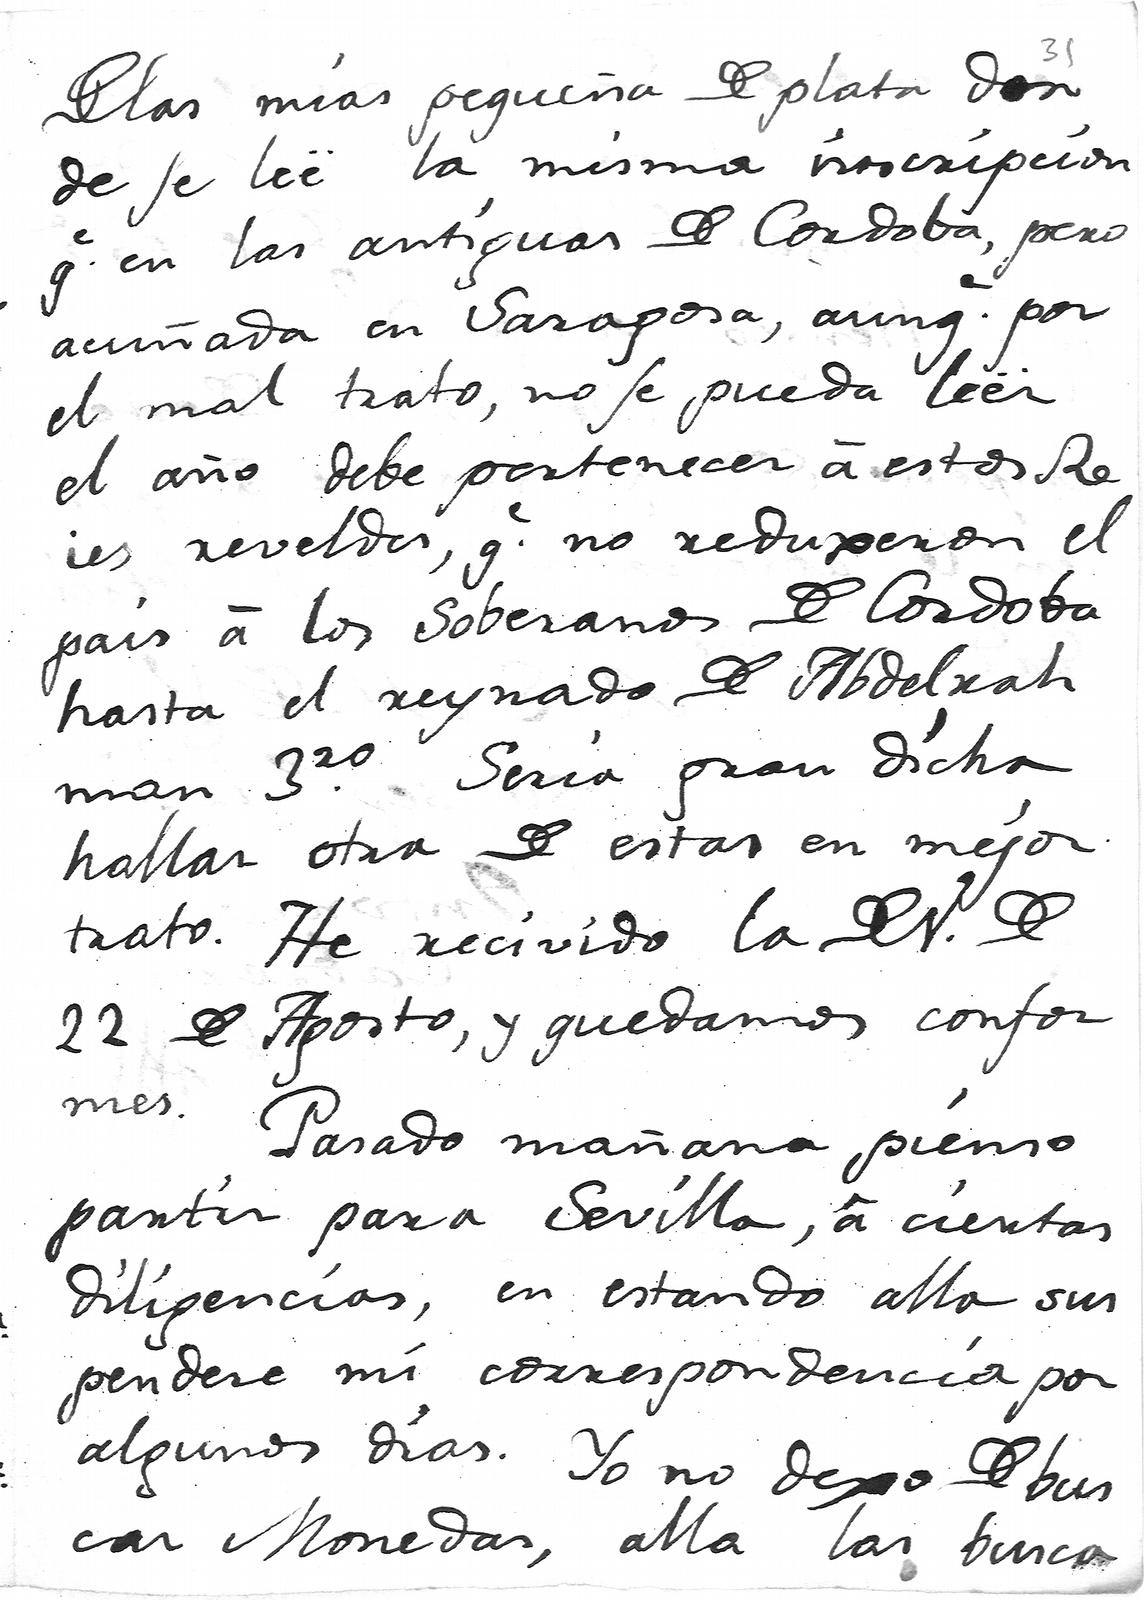 31
De las mias pequeña de plata don
de se leë la misma inscripcion
q.e en las antiguas de Cordoba, pero
acuñada en Saragosa, aunq.e por
el mal trato, no se pueda leër
el año debe pertenecer ā estos Re
ies reveldes, q.e no reduxeron el
pais ā los Soberanos de Cordoba
hasta el reynado de Abdelrah
man 3.ro Seria gran dicha
hallar otra de estas en mejor
trato. He recivido la de V. de
22 de Agosto, y quedamos confor
mes. Pasado mañana pienso
partir para Sevilla, ā ciertas
diligencias, en estando alla sus
pendere mi correspondencia por
algunos dias. Yo no dexo de bus
car Monedas, alla las busca